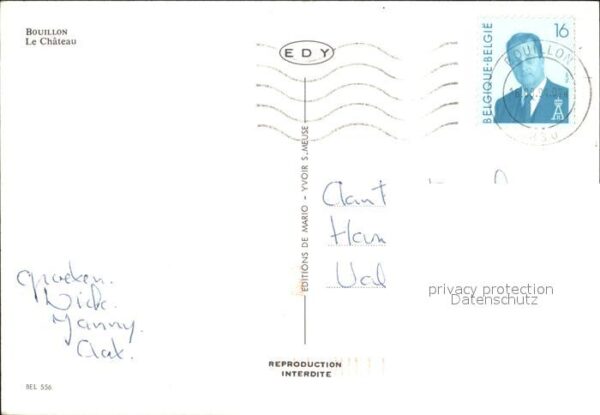 BOUILLON
Le Château
EDY
16
BELGIQUE-BELGIË
BOUILLON
EDITIONS DE MARIO - YVOIR S. MEUSE
Clant
Ham
Val
privacy protection
Datenschutz
groeten.
Dick.
Janny.
REPRODUCTION
INTERDITE
BEL 556